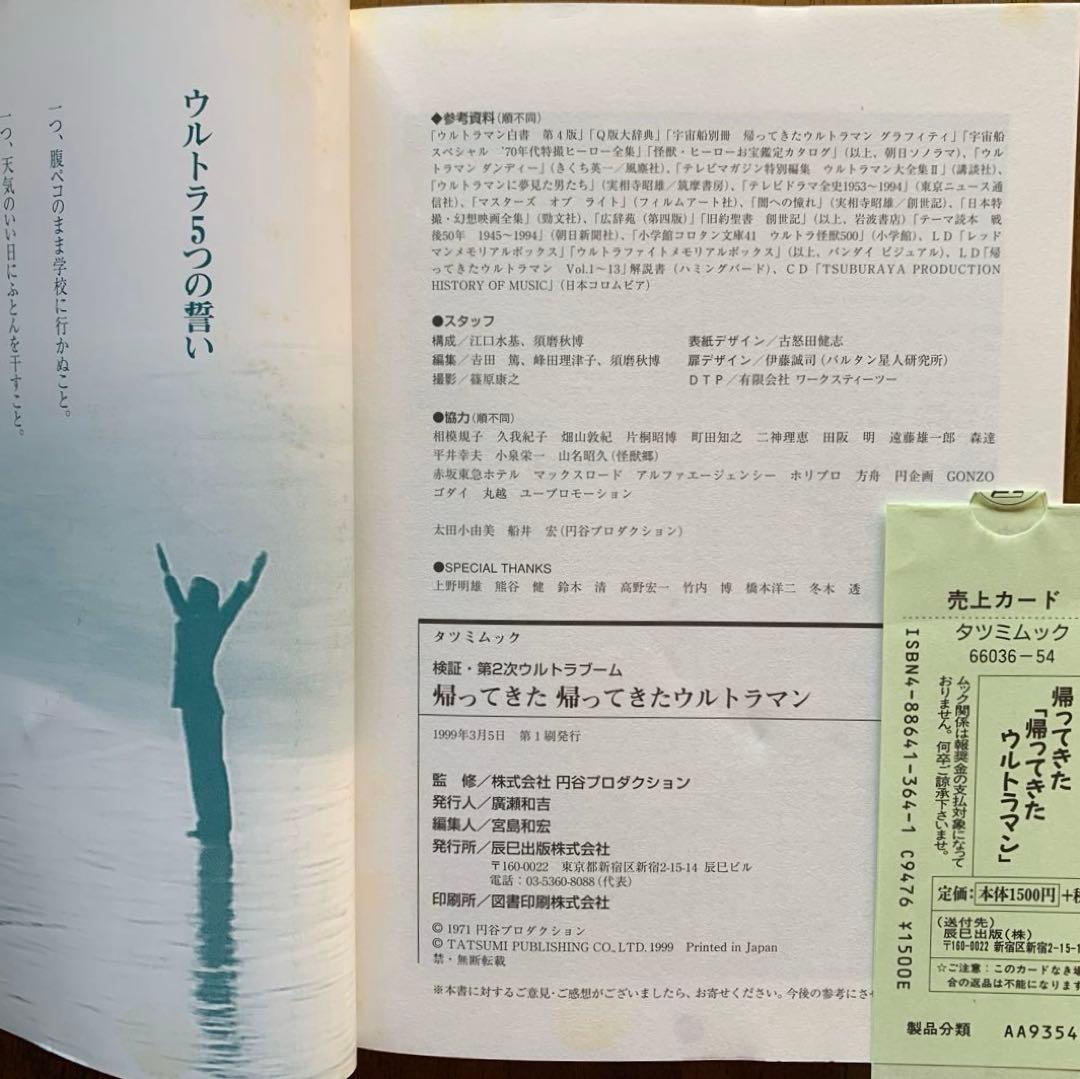 ウルトラ5つの誓い
一つ、腹ペコのまま学校に行かぬこと。
一つ、天気のいい日にふとんを干すこと。
◆参考資料(順不同)
「ウルトラマン白書 第4版」「Q版大辞典」「宇宙船別冊 帰ってきたウルトラマン グラフィティ」「宇宙船
スペシャル '70年代特撮ヒーロー全集」「怪獣・ヒーローお宝鑑定カタログ」(以上、朝日ソノラマ)、「ウル
トラマン ダンディー」(きくち英一/風塵社)、「テレビマガジン特別編集 ウルトラマン大全集Ⅱ」(講談社)、
「ウルトラマンに夢見た男たち」(実相寺昭雄/筑摩書房)、「テレビドラマ全史1953〜1994」(東京ニュース通
信社)、「マスターズ オブ ライト」(フィルムアート社)、「闇への憧れ」(実相寺昭雄/創世記)、「日本特
撮・幻想映画全集」(勁文社)、「広辞苑(第四版)」「旧約聖書 創世記」(以上、岩波書店)「テーマ読本 戦
後50年 1945〜1994」(朝日新聞社)、「小学館コロタン文庫41 ウルトラ怪獣500」(小学館)、LD「レッド
マンメモリアルボックス」「ウルトラファイトメモリアルボックス」(以上、バンダイ ビジュアル)、LD「帰
ってきたウルトラマン Vol.1〜13」解説書(ハミングバード)、CD「TSUBURAYA PRODUCTION
HISTORY OF MUSIC」(日本コロムビア)
●スタッフ
構成/江口水基、須磨秋博 表紙デザイン/古怒田健志
編集/吉田 篤、峰田理津子、須磨秋博 扉デザイン/伊藤誠司(バルタン星人研究所)
撮影/篠原康之 DTP/有限会社 ワークスティーツー
●協力(順不同)
相模規子 久我紀子 畑山敦紀 片桐昭博 町田知之 二神理恵 田阪 明 遠藤雄一郎 森達
平井幸夫 小泉栄一 山名昭久(怪獣郷)
赤坂東急ホテル マックスロード アルファエージェンシー ホリプロ 方舟 円企画 GONZO
ゴダイ 丸越 ユープロモーション
太田小由美 船井 宏(円谷プロダクション)
●SPECIAL THANKS
上野明雄 熊谷 健 鈴木 清 高野宏一 竹内 博 橋本洋二 冬木 透
タツミムック
検証・第2次ウルトラブーム
帰ってきた 帰ってきたウルトラマン
1999年3月5日 第1刷発行
監 修/株式会社 円谷プロダクション
発行人/廣瀬和吉
編集人/宮島和宏
発行所/辰巳出版株式会社
〒160-0022 東京都新宿区新宿2-15-14 辰巳ビル
電話:03-5360-8088(代表)
印刷所/図書印刷株式会社
© 1971 円谷プロダクション
© TATSUMI PUBLISHING CO.,LTD. 1999 Printed in Japan
禁・無断転載
※本書に対するご意見・ご感想がございましたら、お寄せください。今後の参考にさせ
売上カード
タツミムック
66036-54
帰ってきた
「帰ってきた
ウルトラマン」
ムック関係は報奨金の支払対象になって
おりません。何卒ご諒承下さいませ。
ISBN4-88641-364-1 C9476 ¥1500E
定価:本体1500円+税
(送付先)
辰巳出版(株)
〒160-0022 新宿区新宿2-15-1
☆ご注意:このカードなき場
合の返品は不能になります
製品分類 AA9354